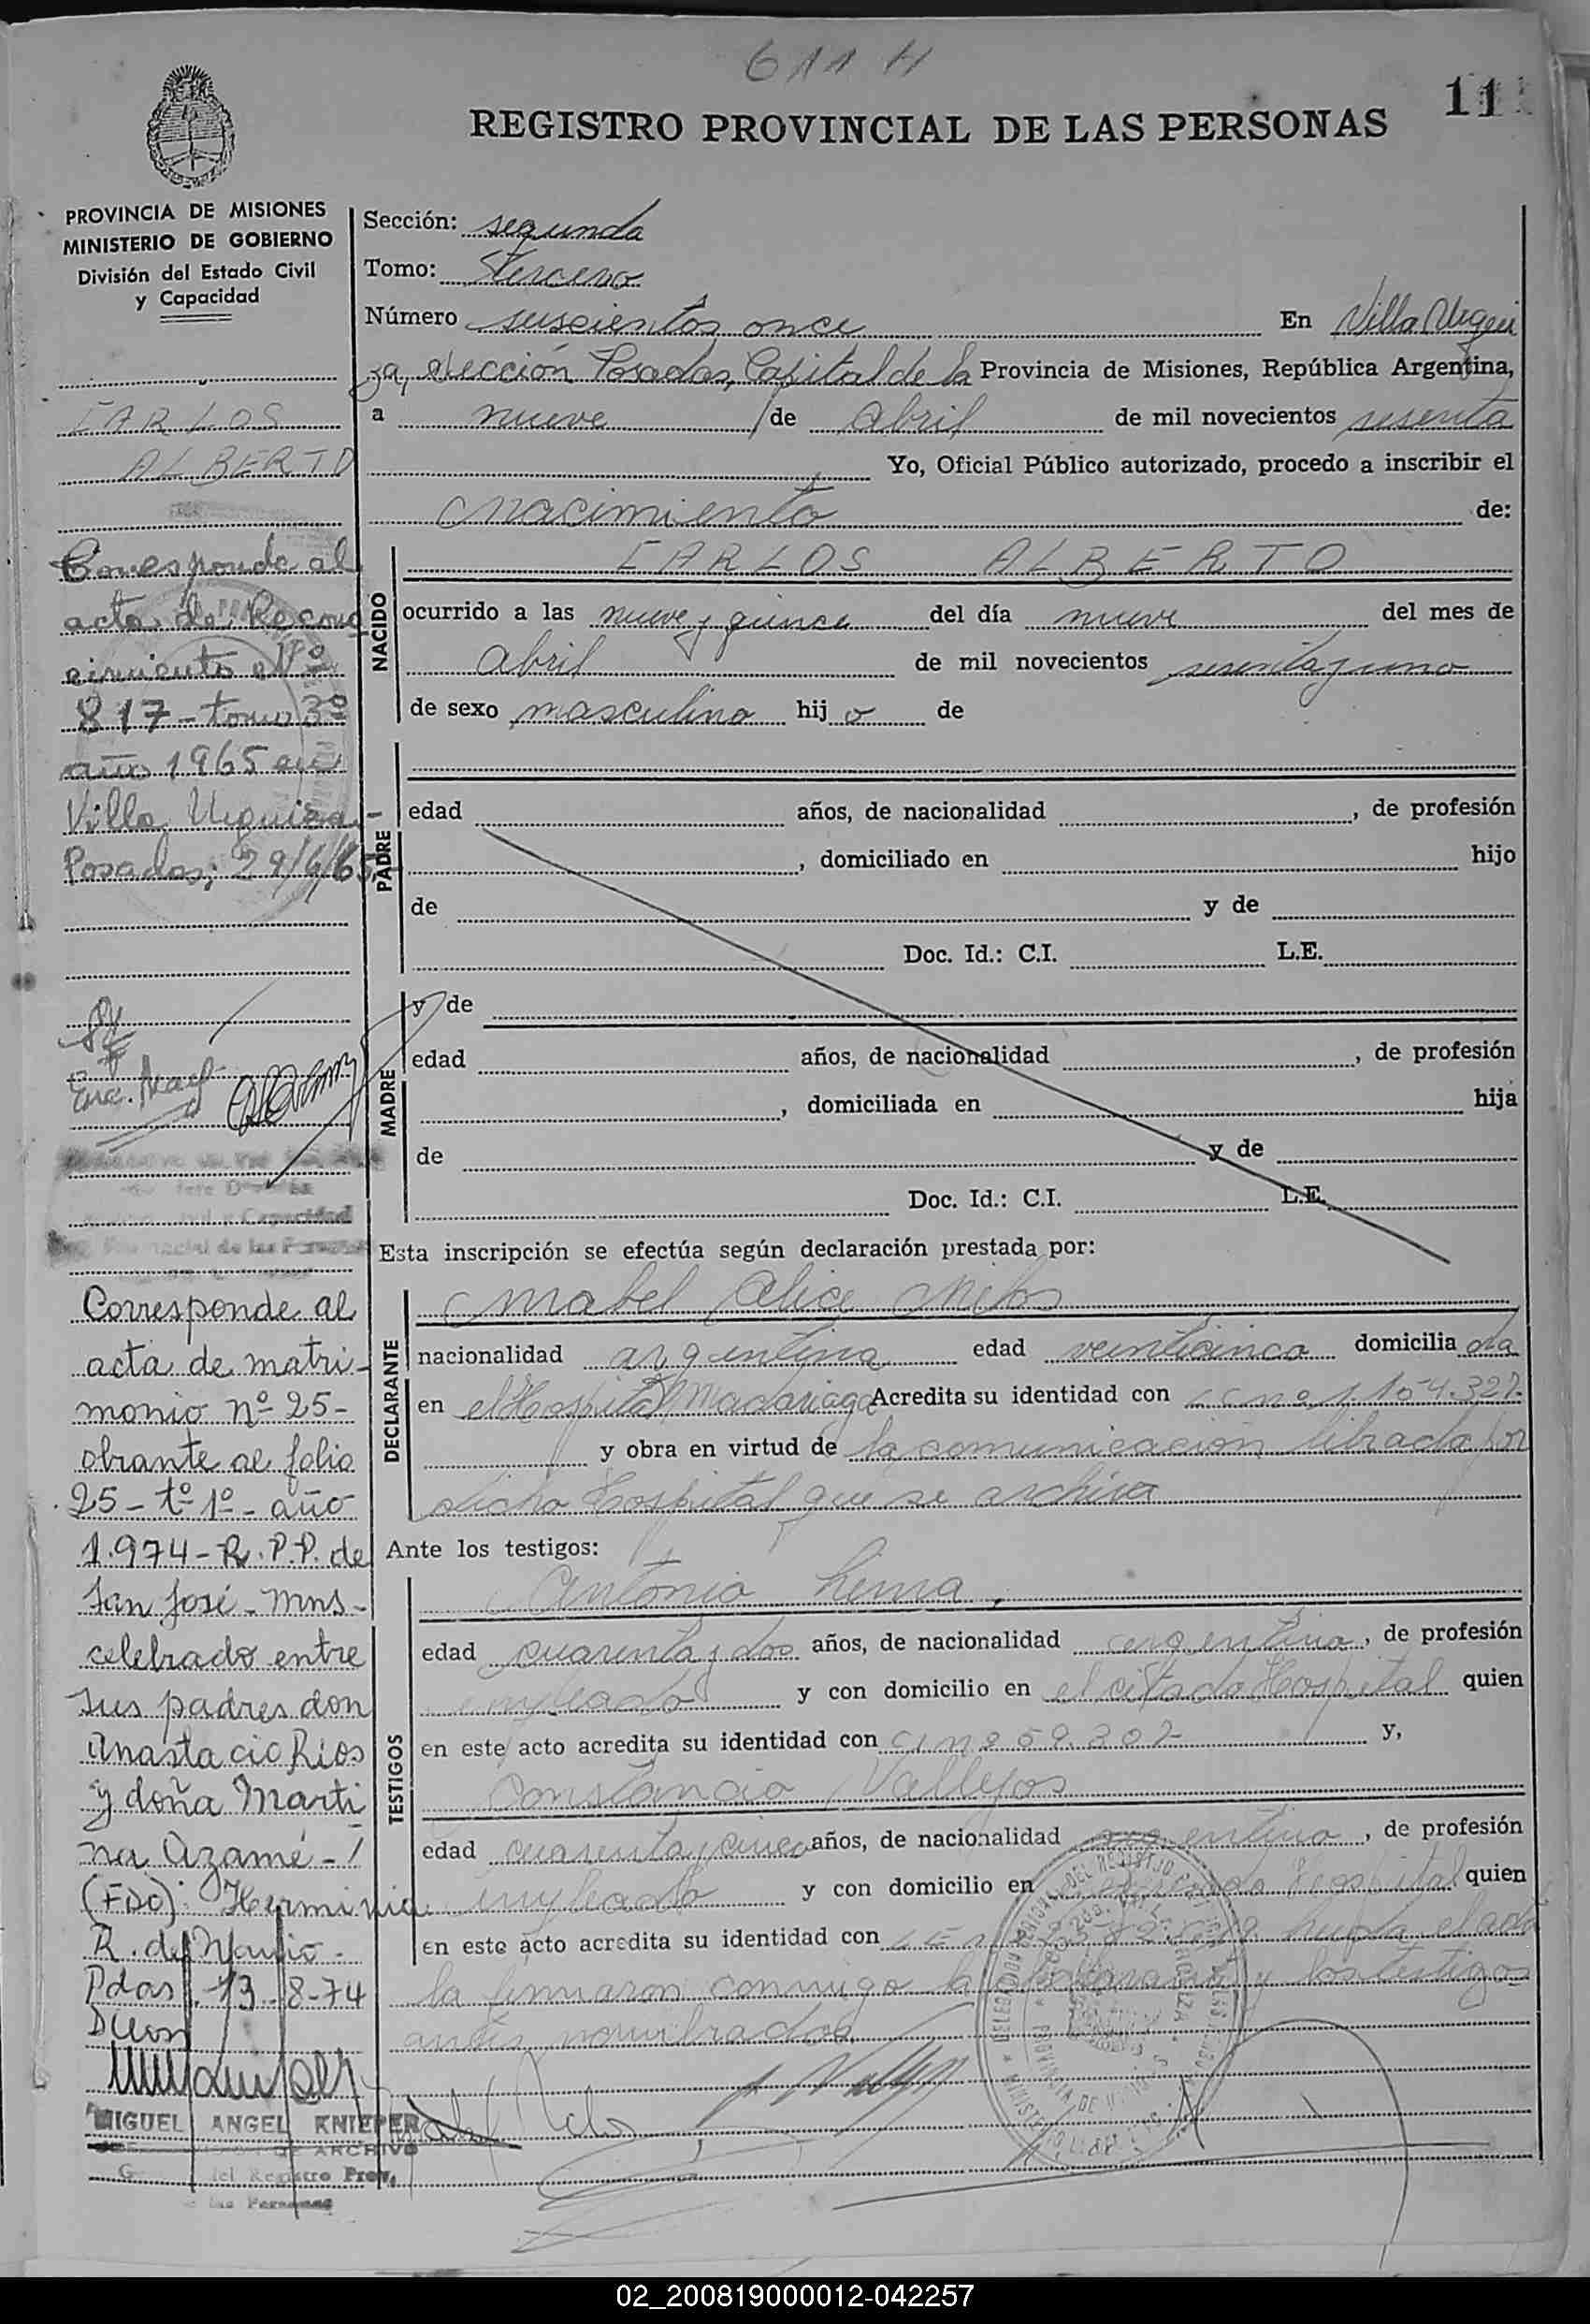 611 H
11
REGISTRO PROVINCIAL DE LAS PERSONAS
PROVINCIA DE MISIONES
MINISTERIO DE GOBIERNO
División del Estado Civil
y Capacidad
CARLOS
ALBERTO
Corresponde al
acta de Recono
cimiento Nº
817 - tomo 3º
año 1965 en
Villa Urquiza -
Posadas; 29/6/65
Enc.
Corresponde al
acta de matri-
monio nº 25-
obrante al folio
25 - tº 1º - año
1.974 - R.P.P. de
San José - Mns -
celebrado entre
sus padres don
Anastacio Rios
y doña Marti
na Azamé -
(FDO): Herminia
R. de
Pdas. 13-8-74
MIGUEL ANGEL KNIEPER
ARCHIVO
del Registro Prov.
las Personas
Sección: segunda
Tomo: Tercero
Número suscientos once En Villa Urqui
za, Sección Posadas, Capital de la Provincia de Misiones, República Argentina,
a nueve de Abril de mil novecientos sesenta
Yo, Oficial Público autorizado, procedo a inscribir el
nacimiento de:
NACIDO
CARLOS ALBERTO
ocurrido a las nueve y quince del día nueve del mes de
Abril de mil novecientos sesenta y uno
de sexo masculino hijo de
PADRE
edad años, de nacionalidad , de profesión
, domiciliado en hijo
de y de
Doc. Id.: C.I. L.E.
MADRE
y de
edad años, de nacionalidad , de profesión
, domiciliada en hija
de y de
Doc. Id.: C.I. L.E.
Esta inscripción se efectúa según declaración prestada por:
DECLARANTE
Mabel Alice Melos
nacionalidad argentina edad veinticinco domiciliada
en el Hospital Madariaga Acredita su identidad con 1.104.327.
y obra en virtud de la comunicación librada por
dicho Hospital que se archiva
Ante los testigos:
TESTIGOS
Antonio Lema,
edad cuarenta y dos años, de nacionalidad argentina, de profesión
empleado y con domicilio en el citado Hospital quien
en este acto acredita su identidad con y,
Constancio Vallejos
edad cuarenta y cinco años, de nacionalidad argentino, de profesión
empleado y con domicilio en citado Hospital quien
en este acto acredita su identidad con
la firmaron conmigo la declarante y los testigos
antes nombrados
02_200819000012-042257